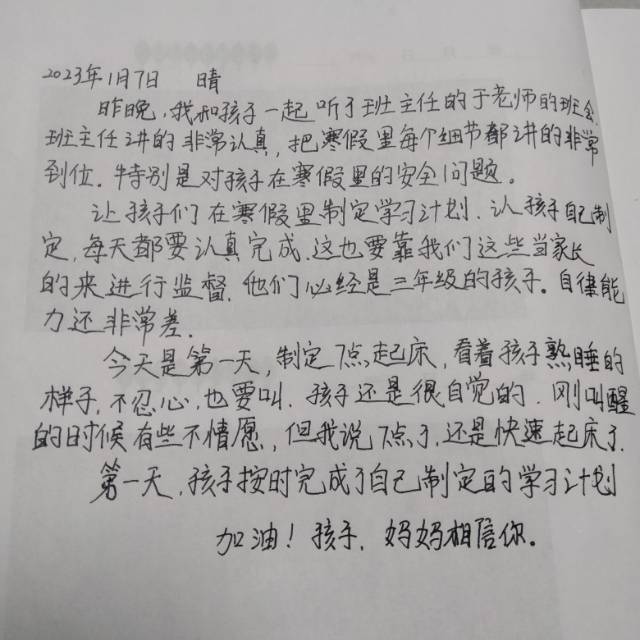 2023年1月7日 晴
昨晚,我和孩子一起听了班主任的于老师的班会,
班主任讲的非常认真,把寒假里每个细节都讲的非常
到位.特别是对孩子在寒假里的安全问题。
让孩子们在寒假里制定学习计划.认孩子自己制
定,每天都要认真完成.这也要靠我们这些当家长
的来进行监督.他们必经是三年级的孩子。自律能
力还非常差.
今天是第一天,制定7点起床,看着孩子熟睡的
样子,不忍心,也要叫.孩子还是很自觉的.刚叫醒
的时候有些不情愿,但我说7点了,还是快速起床了.
第一天,孩子按时完成了自己制定的学习计划
加油!孩子,妈妈相信你。